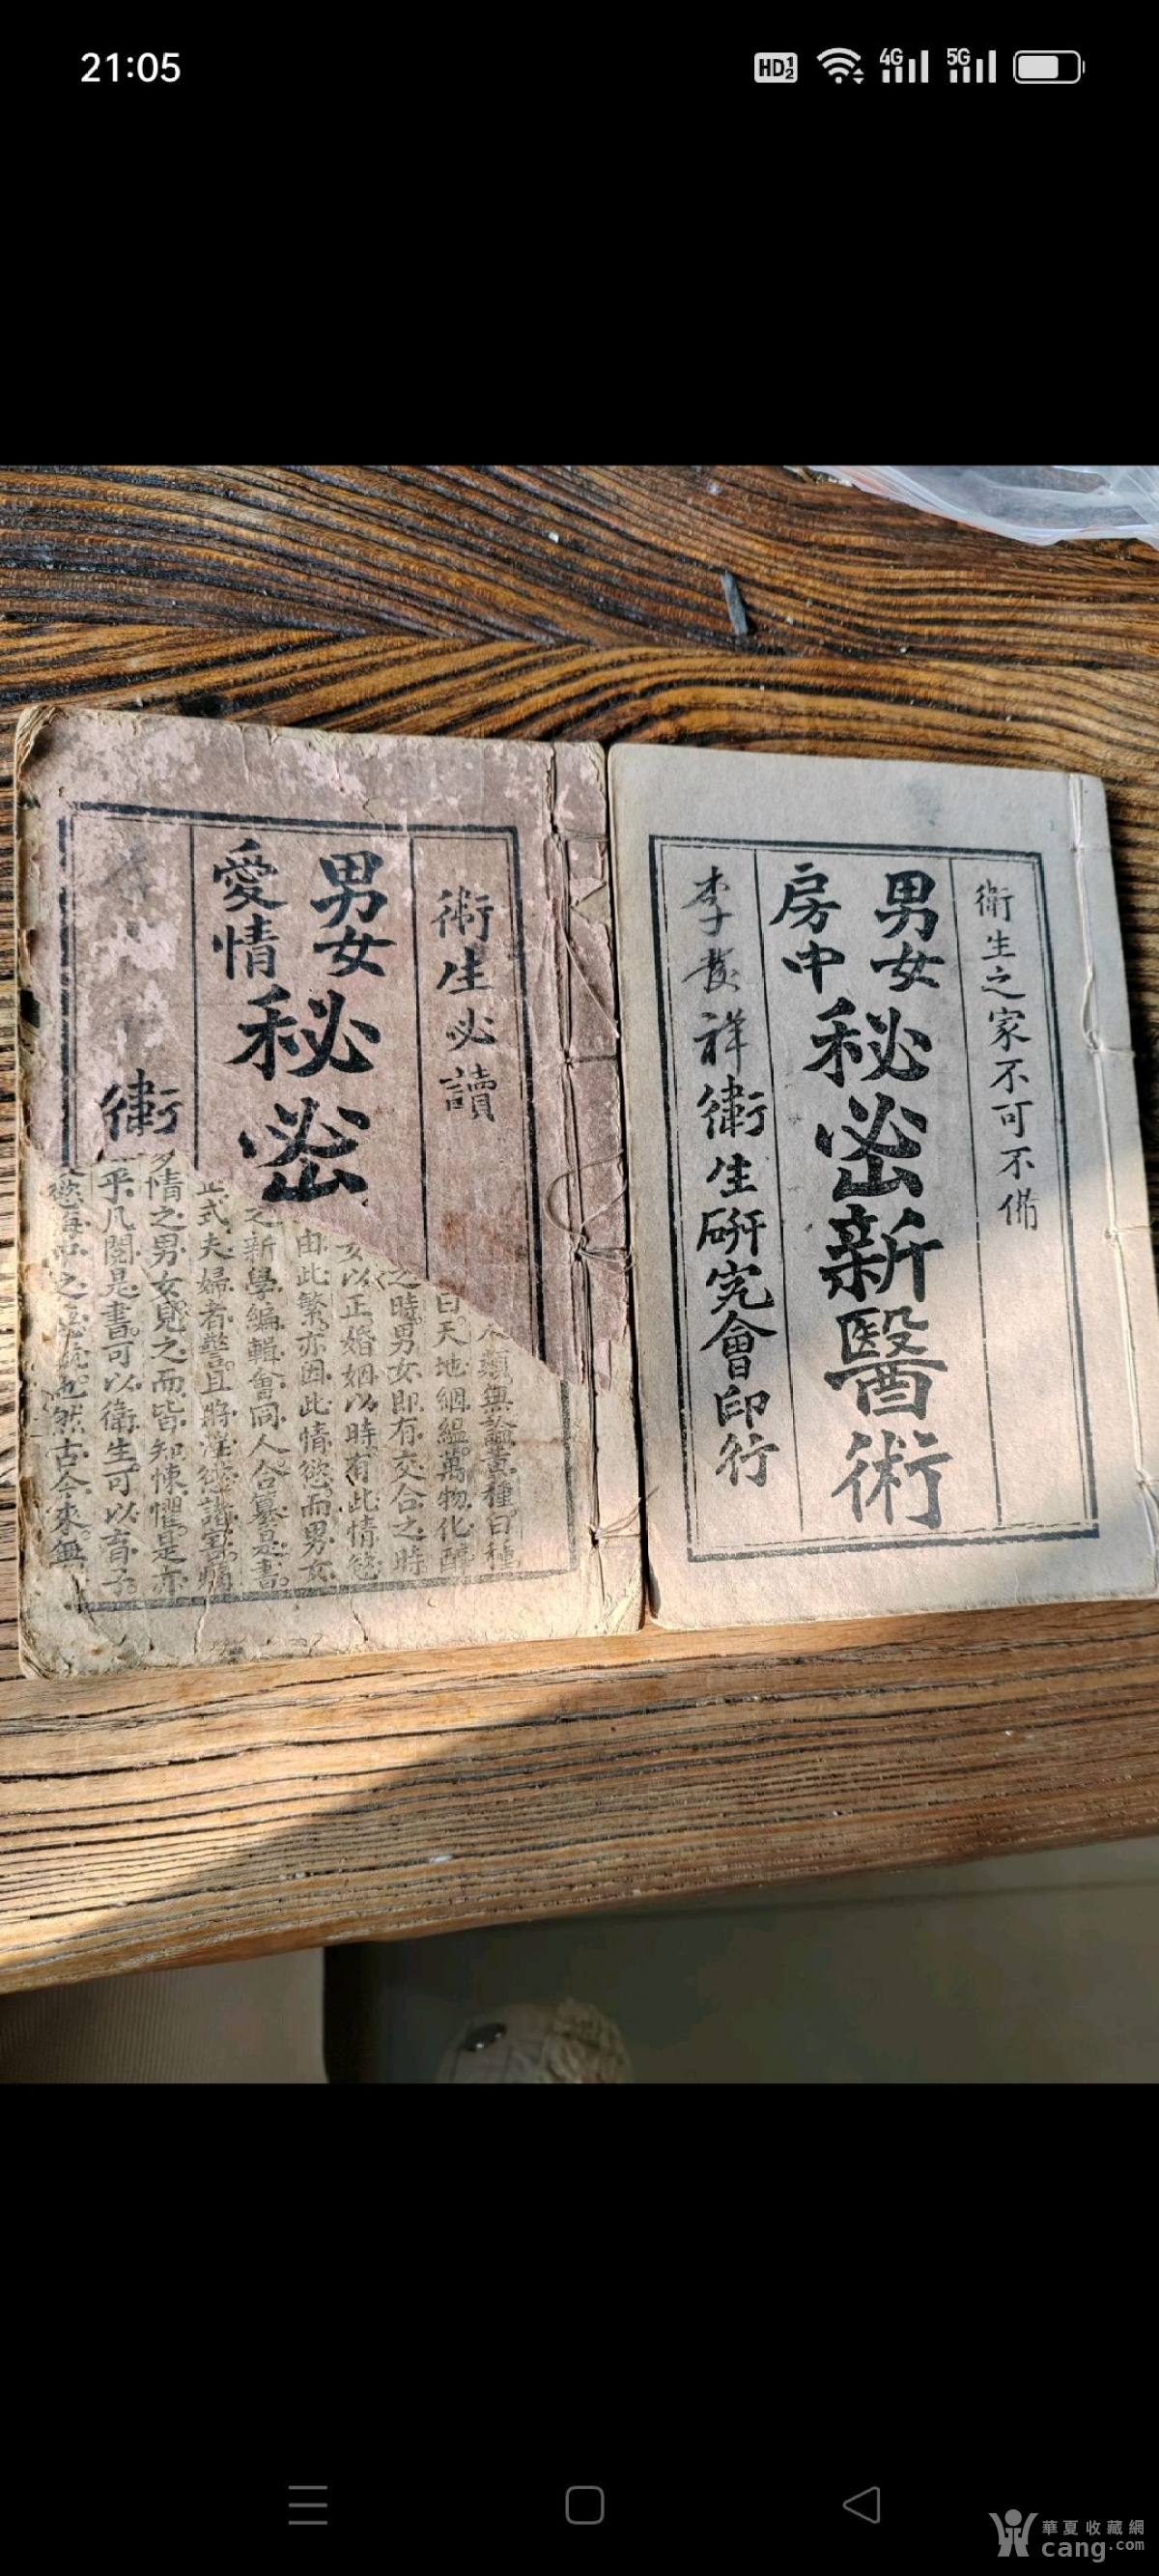 21:05
HD 1 2 4G 5G
衛生必讀
男女
愛情
秘密
衛
類無論黃種白種
曰天地絪緼萬物化醇
之時男女即有交合之時
女以正婚姻以時有此情慾
由此繁亦因此情慾而男女
之新學編輯會同人合纂是書
正式夫婦者警且將淫慾諸害
情之男女見之而皆知悚懼是亦
乎凡閱是書可以衛生可以育子
慾海中之
也然古今來無
衛生之家不可不備
男女
房中
秘密新醫術
李發祥衛生研究會印行
華夏收藏網
cang.com